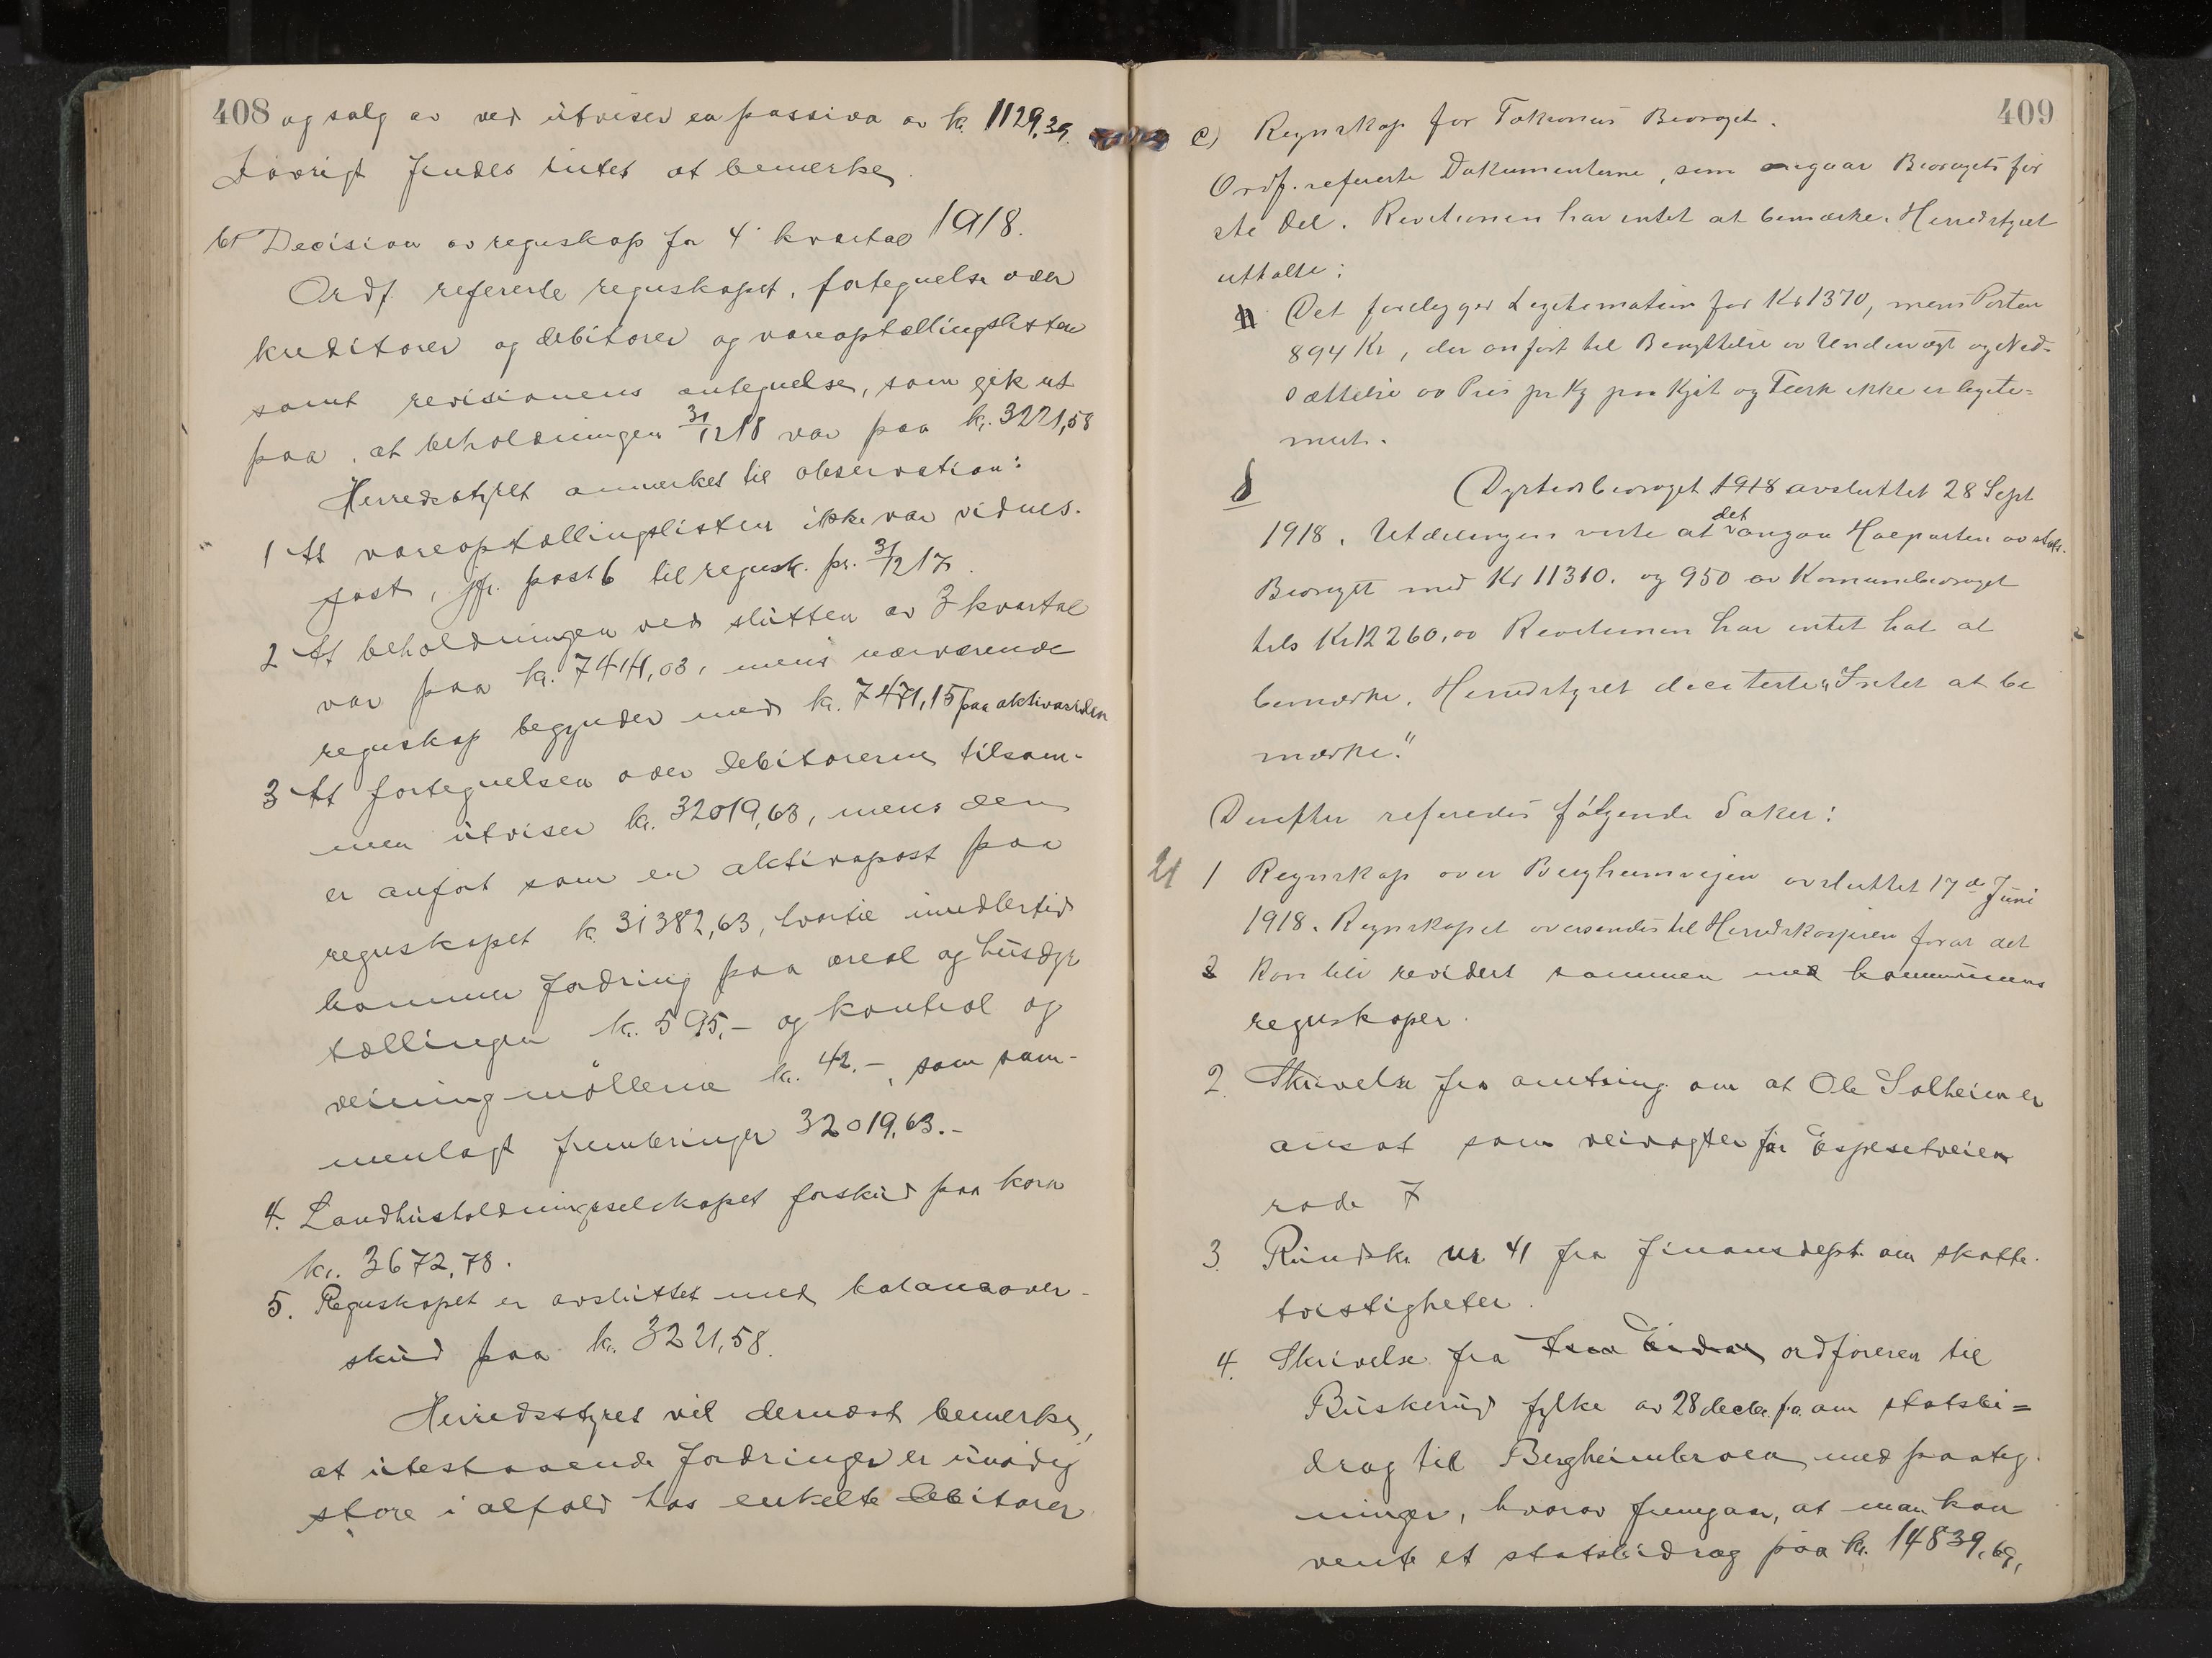 408 og salg av ved utviser en passiva av kr. 1129,39.
Iøvrigt findes intet at bemerke.
b) Decision av regnskap for 4 kvartal 1918.
Ordf. refererte regnskapet, fortegnelse over
kreditorer og debitorer og vareoptællingslisten
samt revisionens antegnelse, som gik ut
paa, at beholdningen 31/12 18 var paa kr. 3221,58
Herredsstyret anmerket til observation:
1 At vareoptællingslisten ikke var vidnes-
fast, jfr. post 6 til regnsk. pr. 31/12 17.
2 At beholdningen ved slutten av 3 kvartal
var paa kr. 7441,03, mens nærværende
regnskap begynder med kr. 7471,15 paa aktivasiden
3 At fortegnelsen over debitorerne tilsam-
men utviser kr. 32019,63, mens den
er anført som en aktivapost paa
regnskapet kr. 31382,63, hvortil imidlertid
kommer fordring paa areal og husdyr
tællingen kr. 595,- og kontrol og
veining møllerne kr. 42.-, som sam-
menlagt frembringer 32019,63.-
4. Landhusholdningsselskapet forskud paa korn
kr. 3672,78.
5. Regnskapet er avsluttet med balanseover-
skud paa kr. 3221,58.
Herredsstyret vil dernæst bemerke,
at utestaaende fordringer er unødig
store i alfald hos enkelte debitorer
409
c) Regnskap for Bevroget.
Ordf. refererte Dokumenterne, som angaar Bevrogets før
ste Del. Revisionen har intet at bemærke. Herredstyret
uttalte:
Det foreligger Legitimation for Kr 1370, mens Posten
894 Kr, der anført til Benyttelse av Undervægt og Ned-
sættelse av Pris pr Kg paa Kjøt og Flesk ikke er legiti-
mert.
d Dyrtidsbevroget 1918 avsluttet 28 Sept
1918. Utdelingen viste at det angaa Halparten av stats.
Bevroget med Kr 11310. og 950 av Komunebevroget
tils Kr 12260,00 Revisionen har intet hat at
bemærke. Herredstyret deciterte: "Intet at be
mærke."
Derefter referedes følgende Saker:
21 1 Regnskap over Bergheimvejen avsluttet 17de Juni
1918. Regnskapet oversendes til Herredskasseren forat det
2 kan bli revidert sammen med kommunens
regnskaper.
2. Skrivelse fra amtsing. om at Ole Solheim er
ansat som veivogter for Espesetveien
rode 7
3. Rundskr. nr 41 fra finansdept. om skatte-
tvistigheter.
4. Skrivelse fra ordføreren til
Buskerud fylke av 28 decbr. f.a. om statsbi=
drag til Bergheimbroen med paateg-
ninger, hvorav fremgaar, at man kan
vente et statsbidrag paa kr. 14839,69,